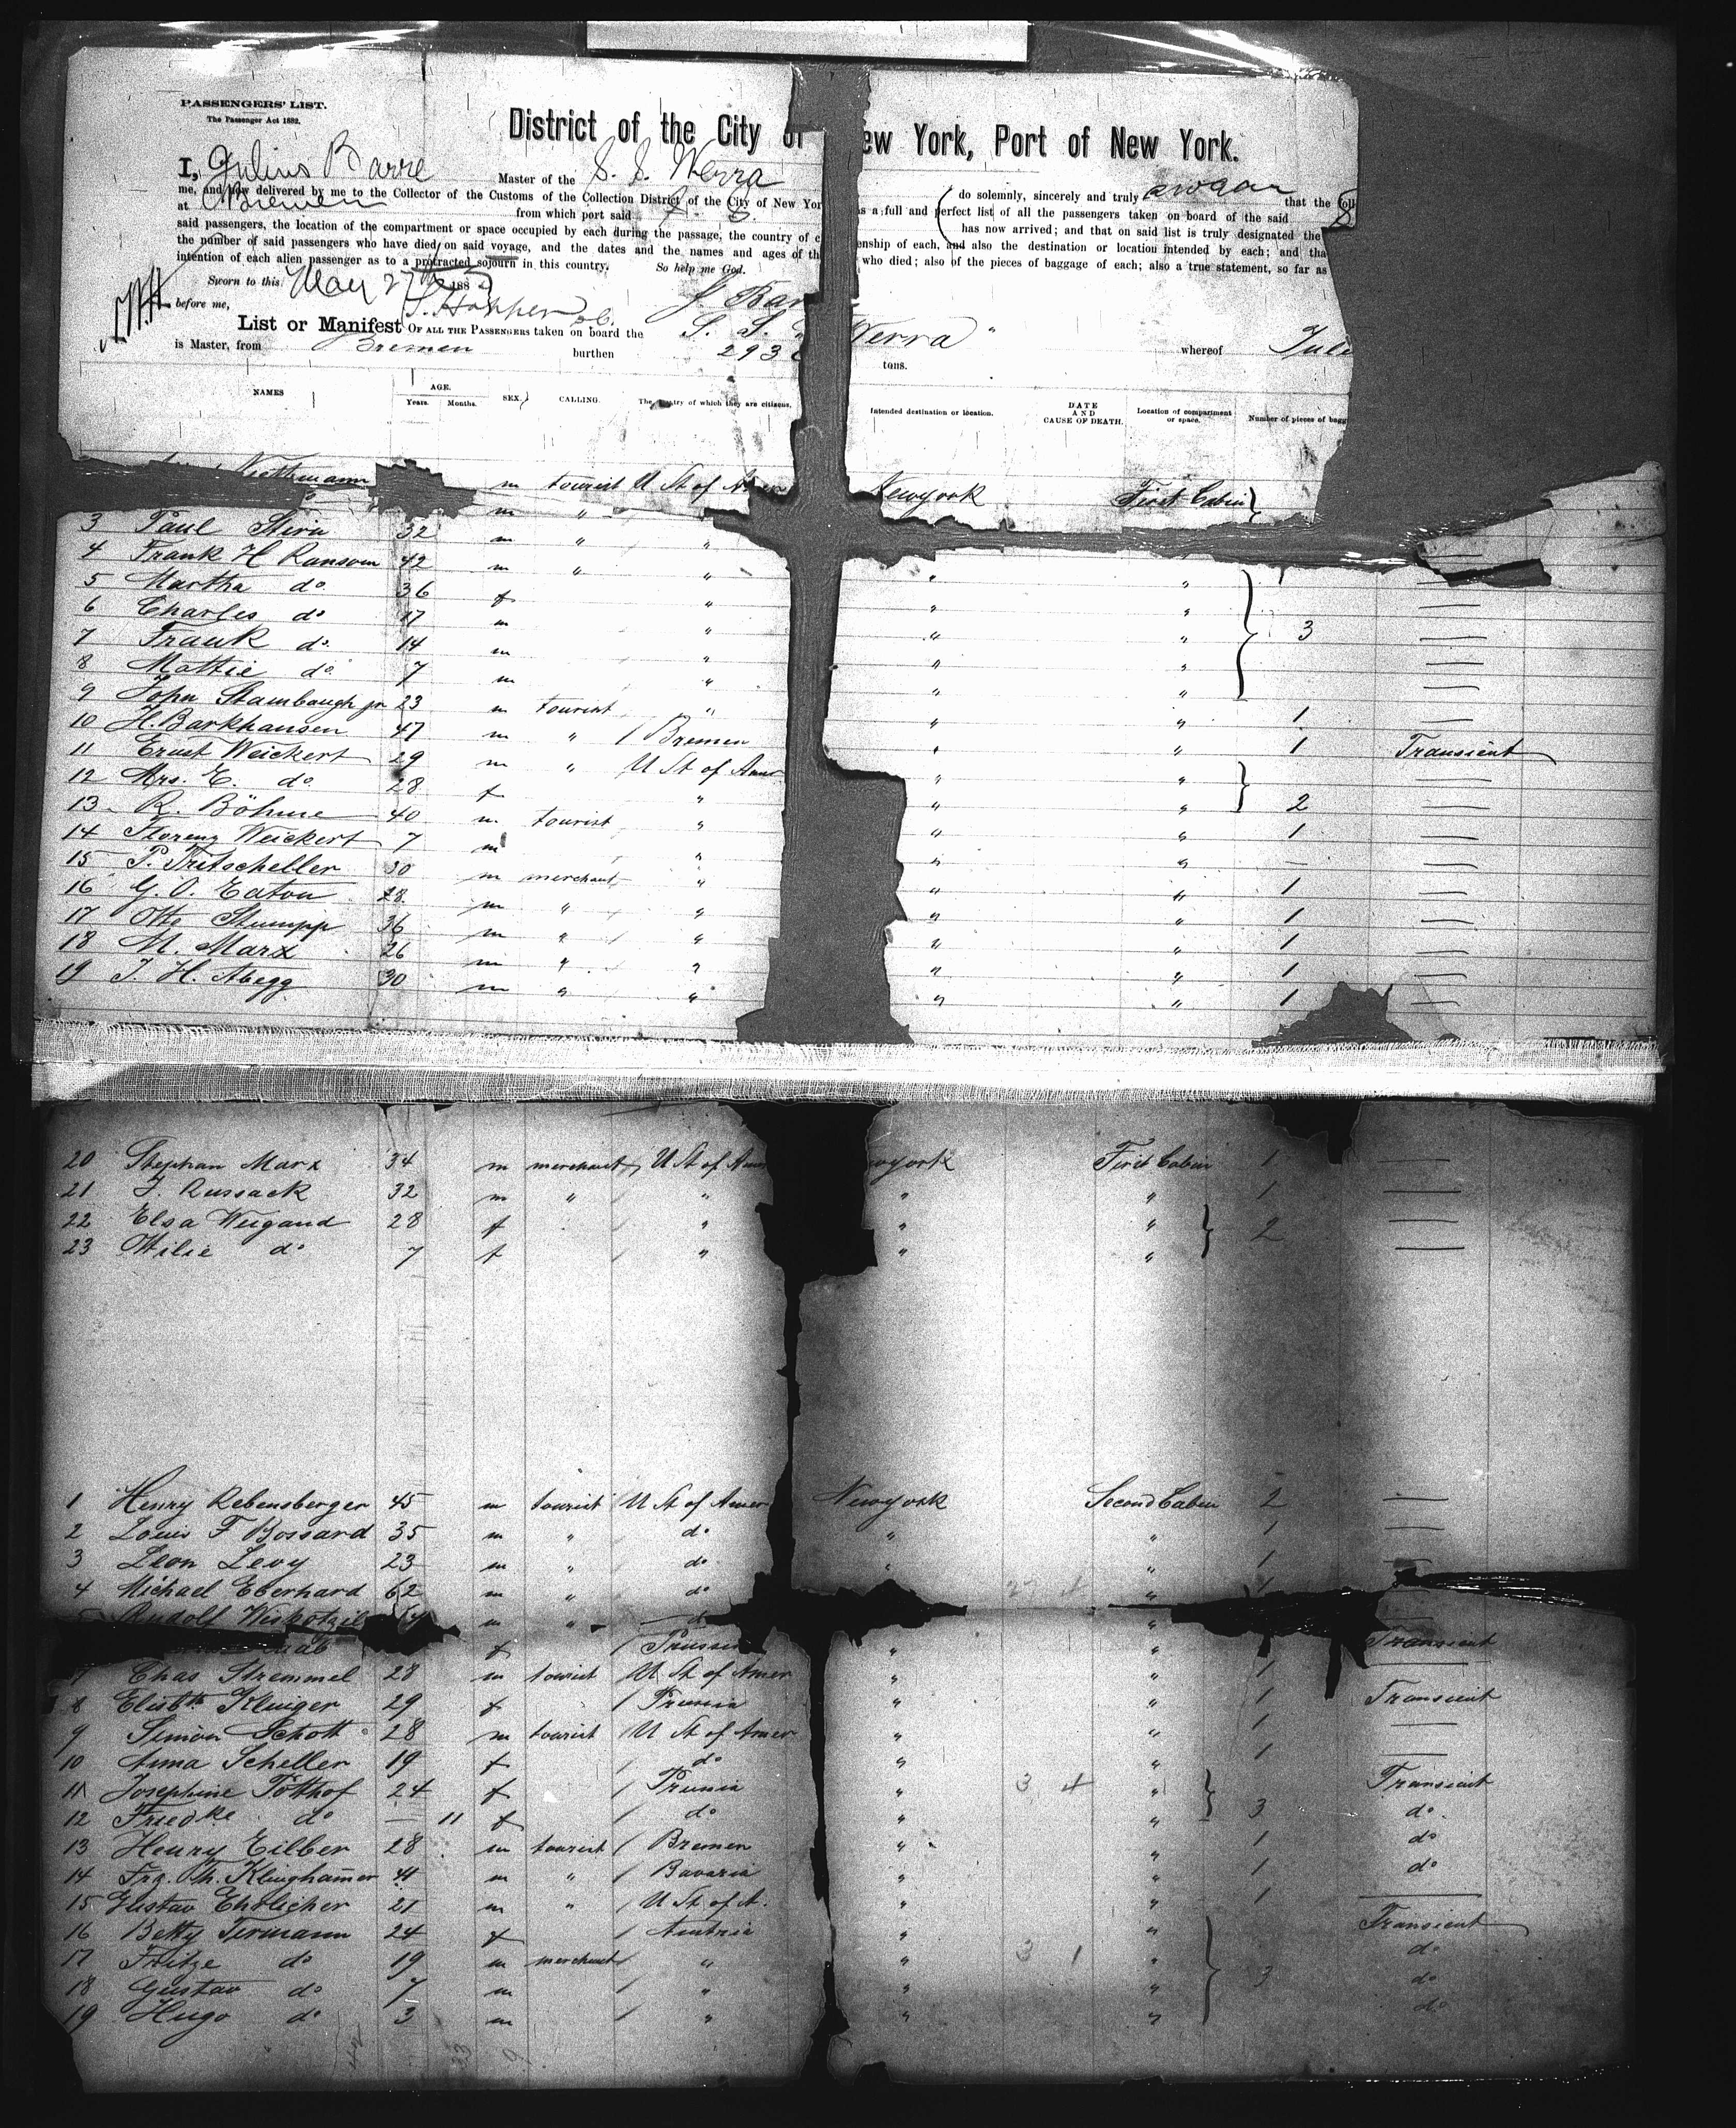 PASSENGERS' LIST.
The Passenger Act 1882.
District of the City of New York, Port of New York.
I, Julius Barre Master of the S. S. Werra do solemnly, sincerely and truly swear that the foll
me, and now delivered by me to the Collector of the Customs of the Collection District of the City of New Yor is a full and perfect list of all the passengers taken on board of the said
at Bremen from which port said S. S. has now arrived; and that on said list is truly designated the
said passengers, the location of the compartment or space occupied by each during the passage, the country of c enship of each, and also the destination or location intended by each; and tha
the number of said passengers who have died on said voyage, and the dates and the names and ages of th who died; also of the pieces of baggage of each; also a true statement, so far as
intention of each alien passenger as to a protracted sojourn in this country. So help me God.
Sworn to this May 27th 188
before me, J Bar
List or Manifest OF ALL THE PASSENGERS taken on board the S. S. Werra whereof Juli
is Master, from Bremen burthen 293 tons.
NAMES AGE. Years. Months. SEX. CALLING. The country of which they are citizens. Intended destination or location. DATE AND CAUSE OF DEATH. Location of compartment or space. Number of pieces of bagg
m tourist U St of Amer Newyork First Cabin
m " "
3 Paul 32 m " "
4 Frank H Ransom 42 m " " " "
5 Martha do 36 f " " "
6 Charles do 17 m " " " 3
7 Frank do 14 m " " "
8 Mattie do 7 m " " "
9 John Stambaugh jr 23 m tourist " " " 1
10 H. Barkhausen 47 m " Bremen " " 1 Transient
11 Ernst Weickert 29 m " U St of Amer " "
12 Mrs. E. do 28 f " " " 2
13 R. Böhme 40 m tourist " " " 1
14 Florenz Weickert 7 m " " "
15 P. Tritscheller 30 m merchant " " " 1
16 G. O. Eaton 28 m " " " " 1
17 Otto Stumpp 36 m " " " " 1
18 M. Marx 26 m " " " " 1
19 J. H. Abegg 30 m " " " " 1
20 Stephan Marx 34 m merchant U St of Amer wyork First Cabin 1
21 J. Russack 32 m " " " " 1
22 Elsa Weigand 28 f " " " 2
23 Ottilie do 7 f " " "
1 Henry Rebensberger 45 m tourist U St of Amer Newyork Second Cabin 2
2 Louis F Bossard 35 m " do " " 1
3 Leon Levy 23 m " do " " 1
4 Michael Eberhard 62 m " do " 1
5 Rudolf m " d "
f Prussia " " Transient
7 Chas Stremmel 28 m tourist U St of Amer " " 1
8 Elisbth Kluiger 29 f Prussia " " 1 Transient
9 Simon Schott 28 m tourist U St of Amer " " 1
10 Anna Scheller 19 f do " " 1
11 Josephine Tötthof 24 f Prussia " 3 4 " Transient
12 Friedke do — 11 f do " " 3 do
13 Henry Eilber 28 m tourist Bremen " " 1 do
14 Frz. Th. Klinghamer 41 m " Bavaria " " 1 do
15 Gustav Ehrlicher 21 m " U St of A. " " 1
16 Betty Tirmann 24 f Austria " " Transient
17 Fritze do 19 m merchant " " 3 1 " do
18 Gustav do 7 m " " " 3 do
19 Hugo do 3 m " " " do